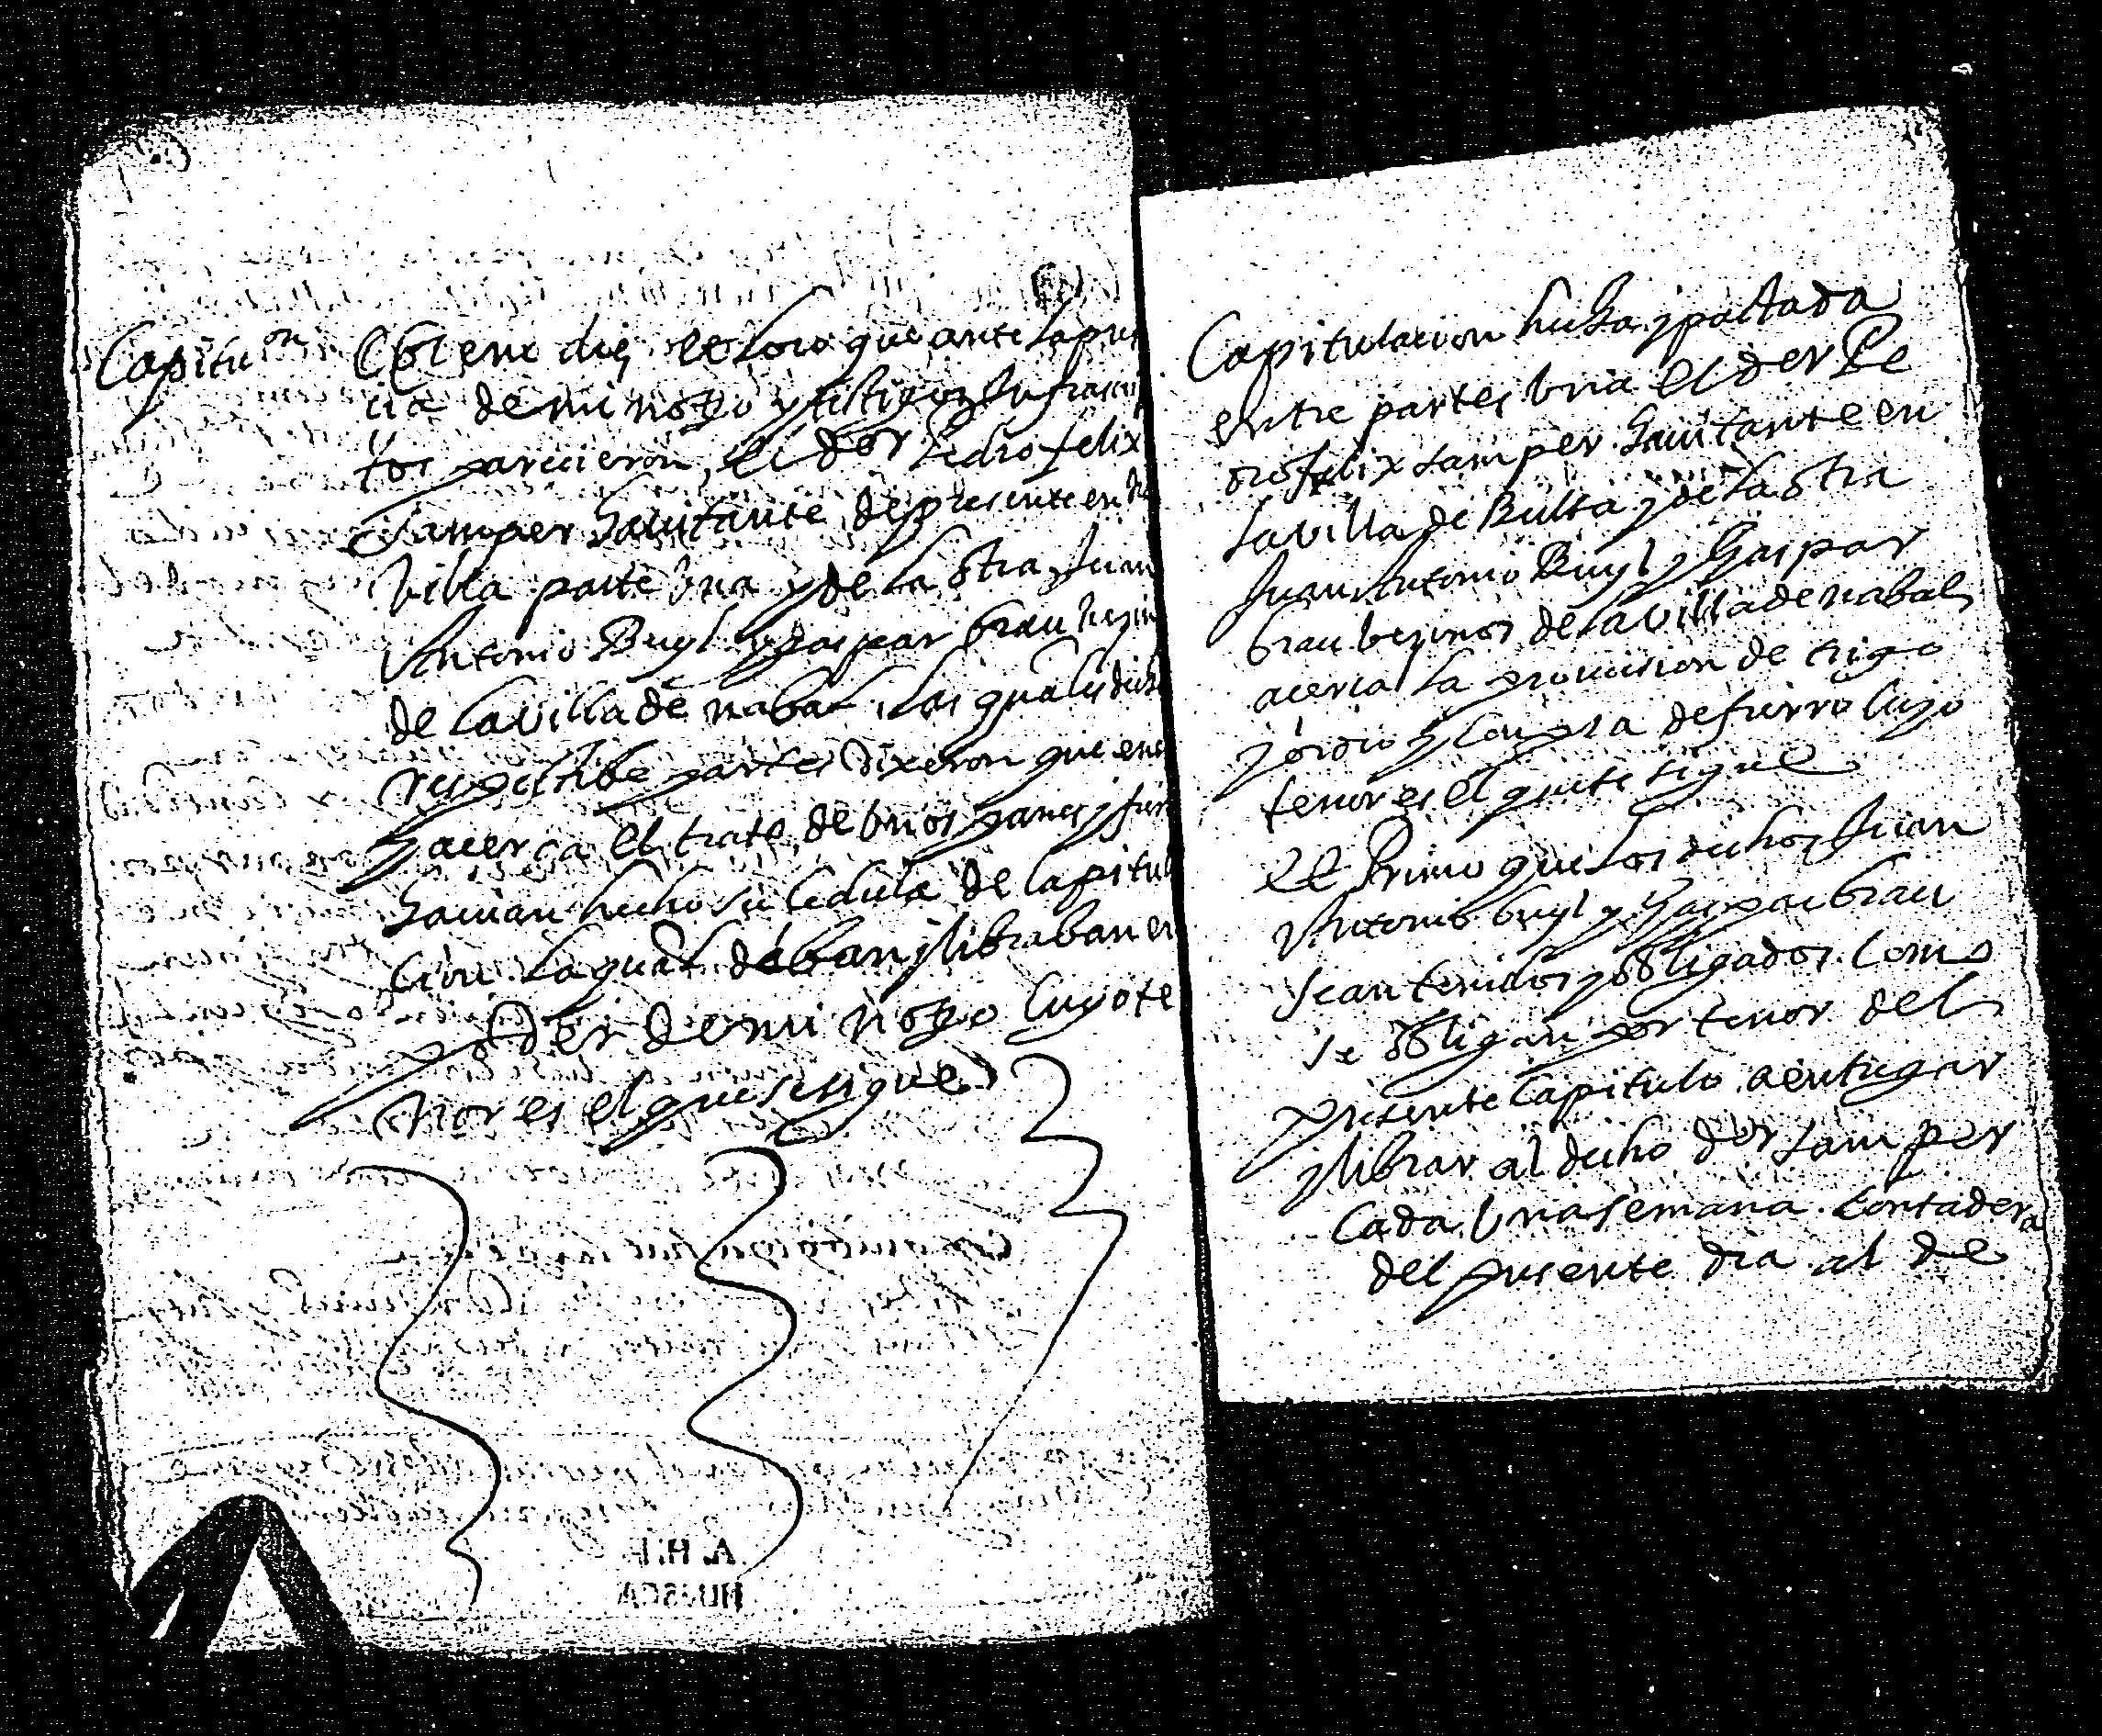 Capitu.on
Eodem die et loco que ante la pre
cia de mi not.o y testigos infrascrip
tos parecieron el dor Pedro felix
samper hauitante de presente en
Villa parte Vna y de la otra Juan
Antonio Buyl y gaspar brau vezin
de la villa de nabal. los quales dich
respectibe partes dixeron que en
y acerca el trato de vnos panes y
hauian hecho su cedula de capitul
cion. la qual daban y libraban en
poder de mi not.o cuyo te
nor es el que se sigue
Capitulacion hecha y pactada
entre partes vna el dor Pe
dro felix samper hauitante en
la villa de Bielsa y de la otra
Juan Antonio Buyl y Gaspar
brau vezinos de la villa de nabal
acerca la prouision de trigo
y ordio y compra de fierro cuyo
tenor es el que se sigue
Et Primo que los dichos Juan
Antonio buyl y Gaspar brau
sean tenidos y obligados. como
se obligan por tenor del
presente capitulo a entregar
y librar al dicho dor samper
cada vna semana. contadera
del presente dia al de
A. H. P.
HUESCA